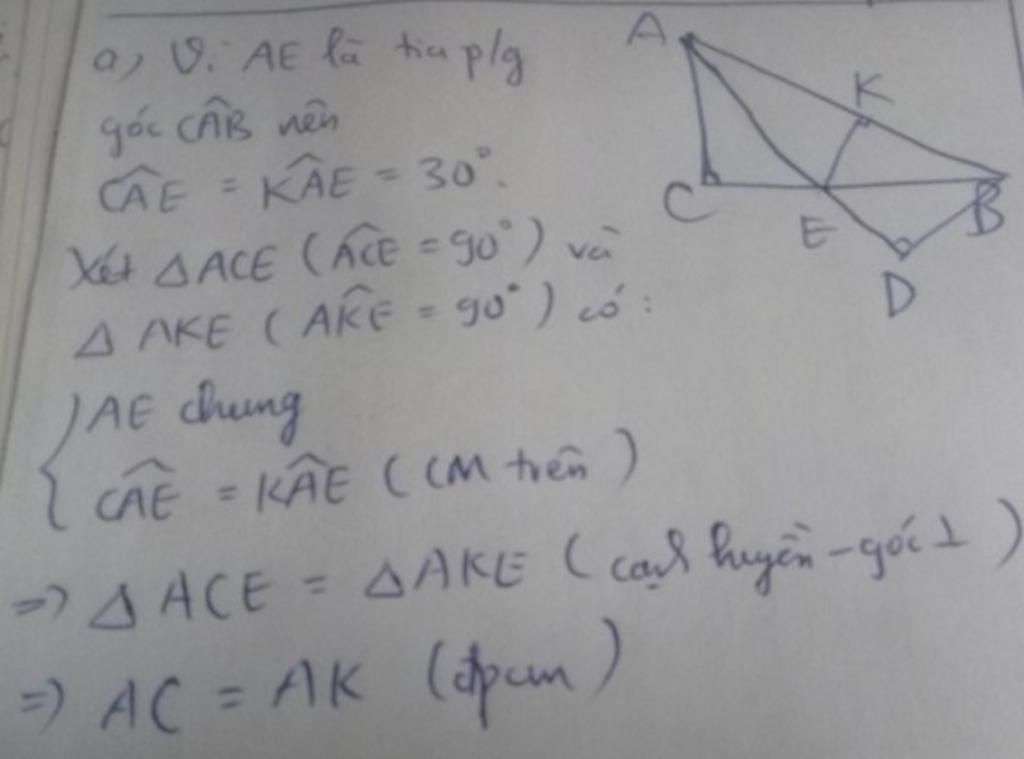 a) Vì AE là tia p/g
góc CÂB nên
CÂE = KÂE = 30°.
Xét △ACE (AĈE = 90°) và
△ AKE (AK̂E = 90°) có:
{ AE chung
CÂE = KÂE (CM trên)
=> △ ACE = △AKE (cạnh huyền - góc ⊥)
=> AC = AK (đpcm)
A
K
C
E
B
D